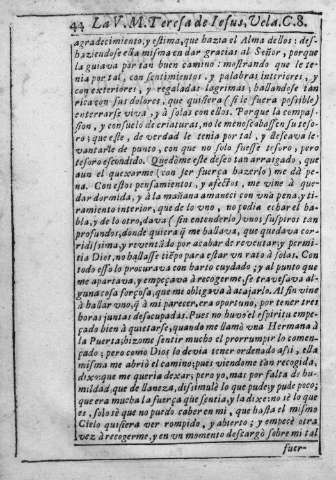 44 La V. M. Teresa de Iesus, Vela. C.8.
agradecimiento, y estima, que hazia el Alma dellos: des-
haziendose ella misma en dar gracias al Señor, porque
la guiava por tan buen camino: mostrando que le te
nia por tal, con sentimientos, y palabras interiores, y
con exteriores, y regaladas lagrimas; hallandose tan
rica con sus dolores, que quisiera (si le fuera possible)
enterrarse viva, y à solas con ellos. Porque la compas-
sion, y consuelo de criaturas, no le menoscabassen su teso-
ro; que este, de verdad le tenia por tal, y desseava le-
vantarle de punto, con que no solo fuesse tesoro, pero
tesoro escondido. Quedòme este deseo tan arraigado, que
aun el quexarme (con ser fuerça hazerlo) me dà pe
na. Con estos pensamientos, y afectos, me vine à que
dar dormida, y à la mañana amaneci con vna pena, y ti-
ramiento interior, que de lo vno, no podia echar el ha-
bla, y de lo otro, dava (sin entenderlo) vnos suspiros tan
profundos, donde quiera q̃ me hallava, que quedava cor-
ridissima, y reventãdo por acabar de reventar; y permi-
tia Dios, no hallasse tiẽpo para estar vn rato à solas. Con
todo esso lo procurava con harto cuydado; y al punto que
me apartava, y empeçava à recogerme, se travesava al-
guna cosa forçosa, que me obligava à atajarlo. Al fin vine
à hallar vno, q̃ à mi parecer, era oportuno, por tener tres
horas juntas desocupadas. Pues no huvo el espiritu empe-
çado bien à quietarse, quando me llamò vna Hermana à
la Puerta; hizome sentir mucho el prorrumpir lo comen-
çado; pero como Dios lo devia tener ordenado assi, ella
misma me abriò el camino; pues viendome tan recogida,
dixo: que me queria dexar; pero yo, mas por falta de hu-
mildad, que de llaneza, dissimulè lo que pude; y pude poco;
que era mucha la fuerça que sentia, y la dixe: no sè lo que
es, solo sè que no puedo caber en mi, que hasta el mismo
Cielo quisiera ver rompido, y abierto; y empecè otra
vez à recogerme, y en vn momento descargò sobre mi tal
fuer-